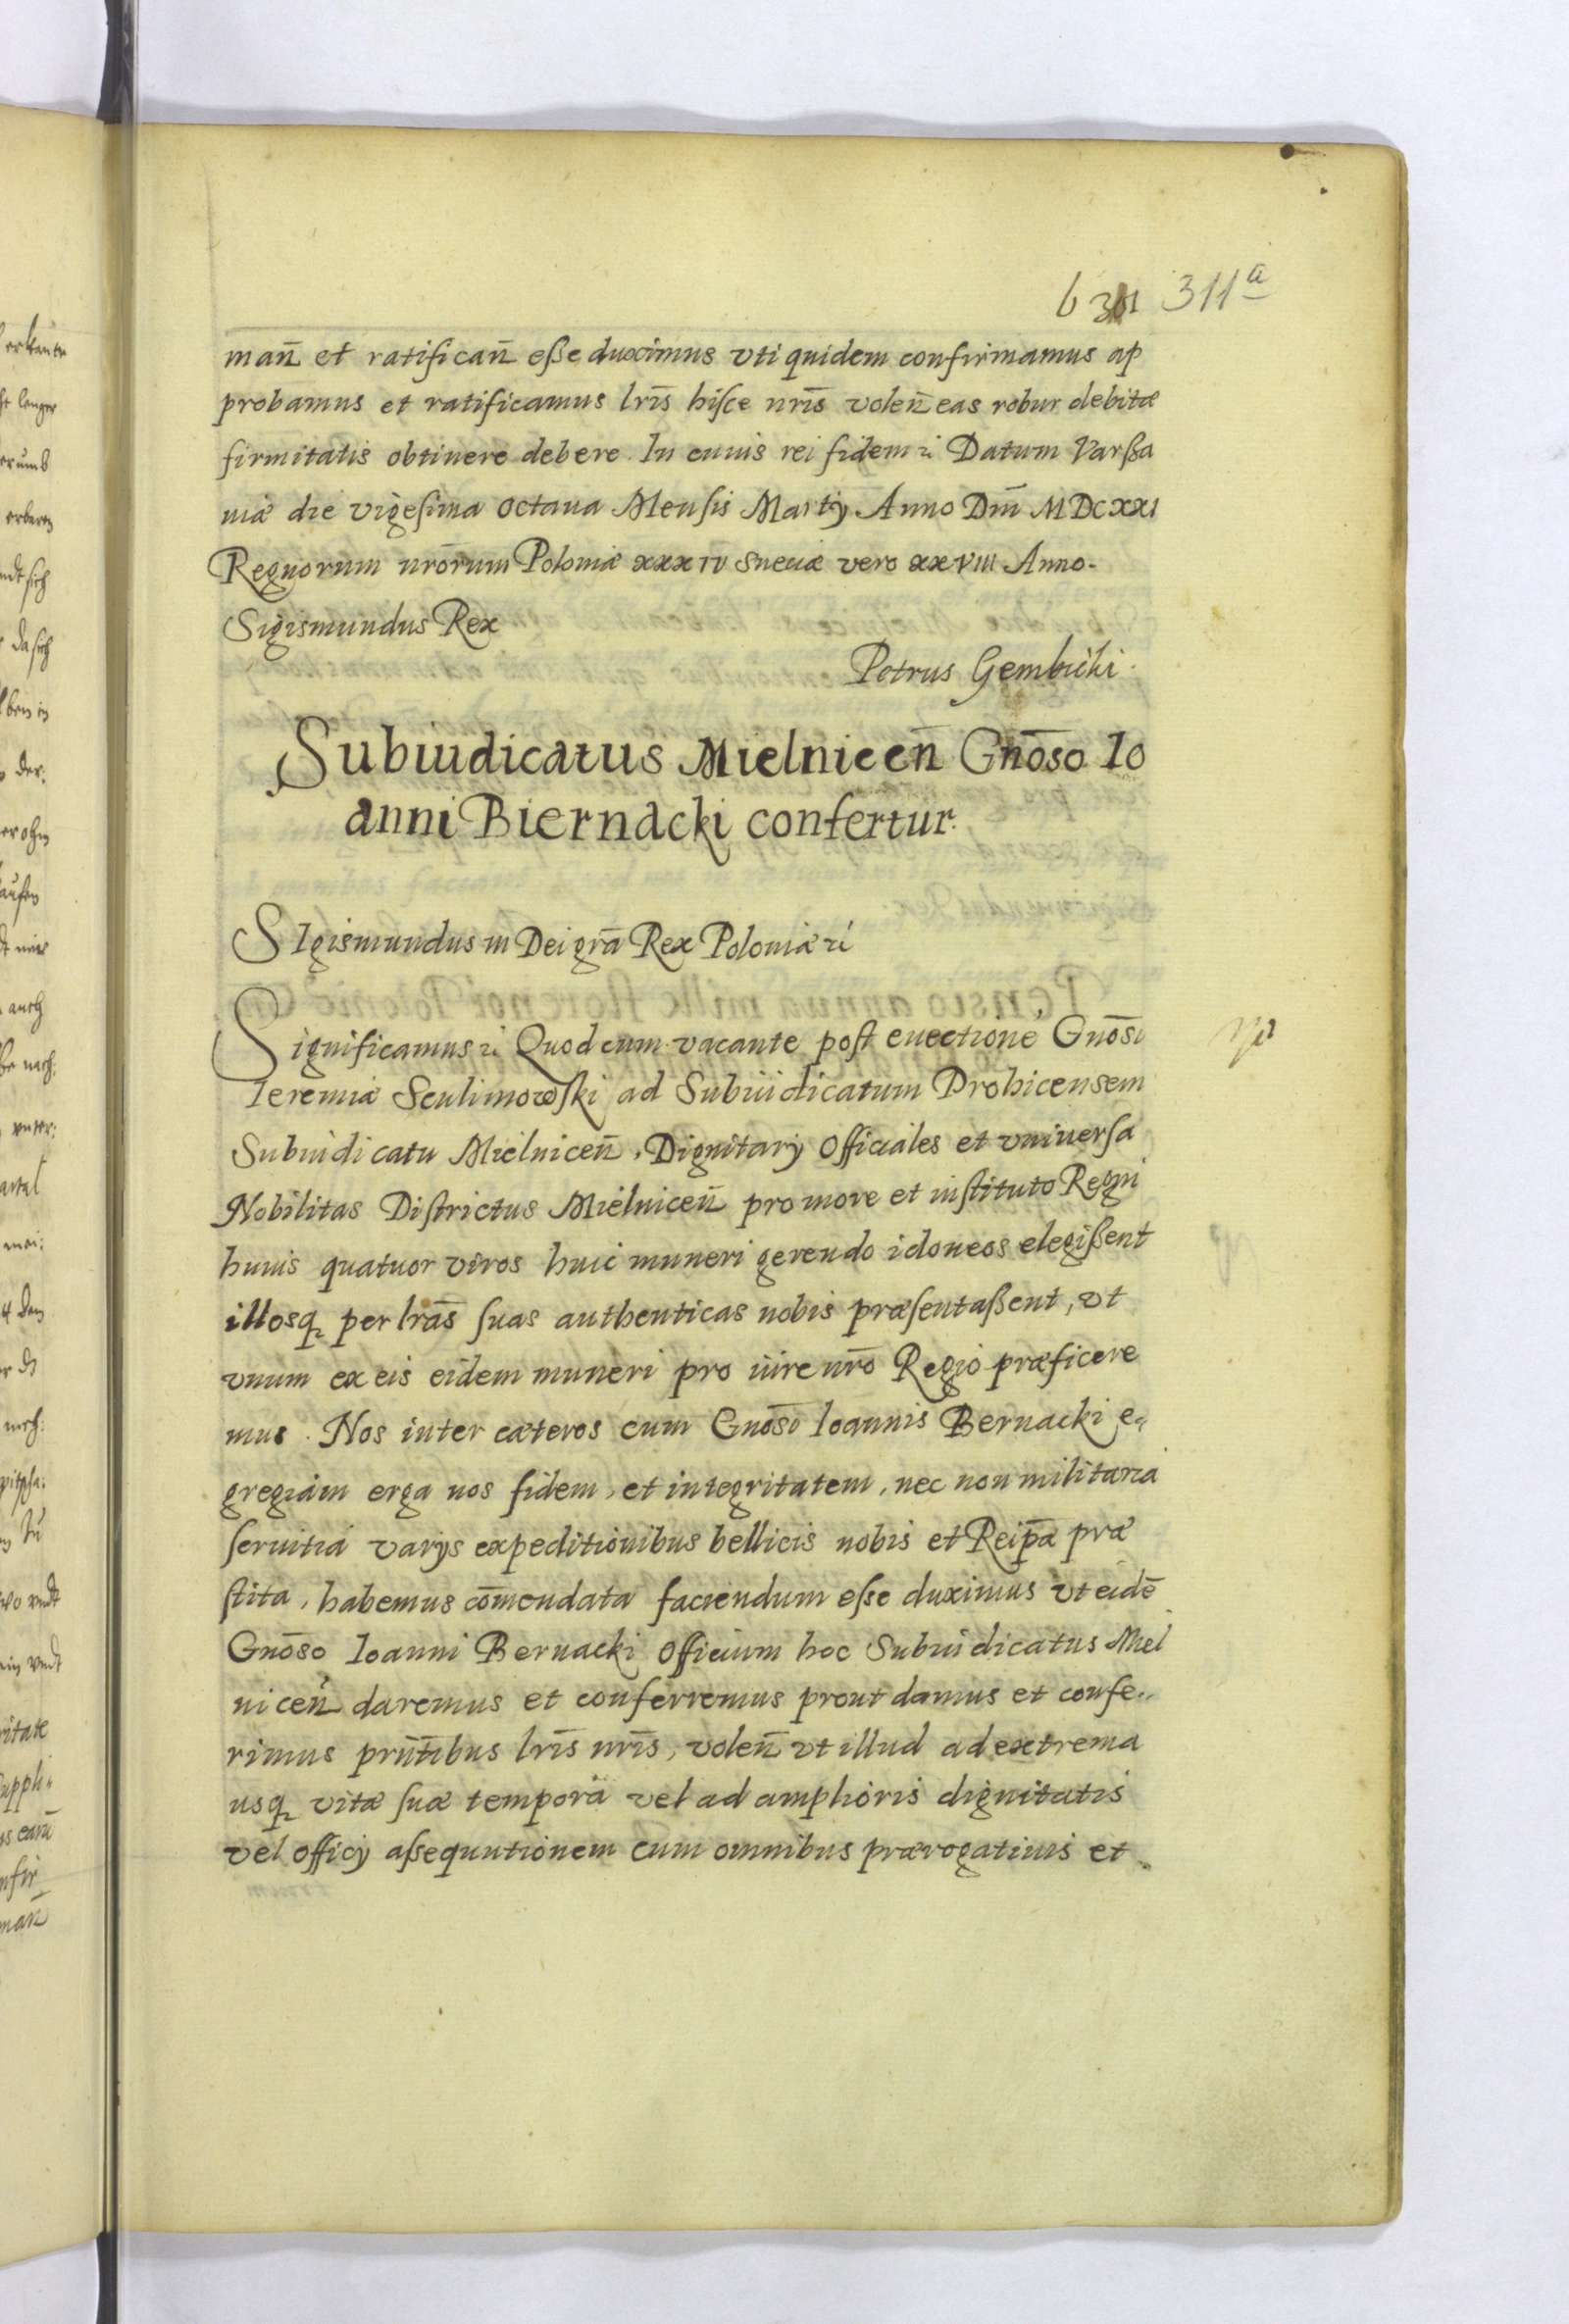 311a
man̄ et ratifican̄ eße duximus vti quidem confirmamus ap
probamus et ratificamus lr̄is hiſce nr̄is volen̄ eas robur debitæ
firmitatis obtinere debere. In cuius rei fidem ꝛc Datum Varßa
uiæ die vigeſima octaua Menſis Martÿ Anno Dn̄i MDCXXI
Regnorum nr̄orum Poloniæ XXXIV Sueciæ vero XXVIII Anno.
Sigismundus Rex
Petrus Gembicki.
Subiudicatus Mielnicen̄ Gnōso Io
anni Biernacki confertur.
SIgismundus III Dei grā Rex Poloniæ ꝛc
Significamus ꝛc Quod cum vacante poſt euectionē Gnōsi
Ieremiæ Sculimowſki ad Subiudicatum Drohicensem
Subiudicatu Mielnicen̄, Dignitarÿ Officiales et vniuerſa
Nobilitas Diſtrictus Mielnicen̄ pro more et inſtituto Regni
huius quatuor viros huic muneri gerendo idoneos elegißent
illosq per lrās ſuas authenticas nobis præſentaßent, vt
vnum ex eis eidem muneri pro iure nr̄o Regio præficere
mus. Nos inter cæteros cum Gnōsi Ioannis Bernacki e-
gregiam erga nos fidem, et integritatem, nec non militaria
ſeruitia varÿs expeditionibus bellicis nobis et Reip̄æ præ
ſtita, habemus cōmendata faciendum eſse duximus vt eidē
Gnōso Ioanni Bernacki Officium hoc Subiudicatus Miel
nicen̄ daremus et conferremus prout damus et confe..
rimus prn̄tibus lr̄is nr̄is, volen̄ vt illud ad extrema
usq vitæ ſuæ tempora vel ad amplioris dignitatis
vel officÿ aſsequutionem cum omnibus prærogatiuis et